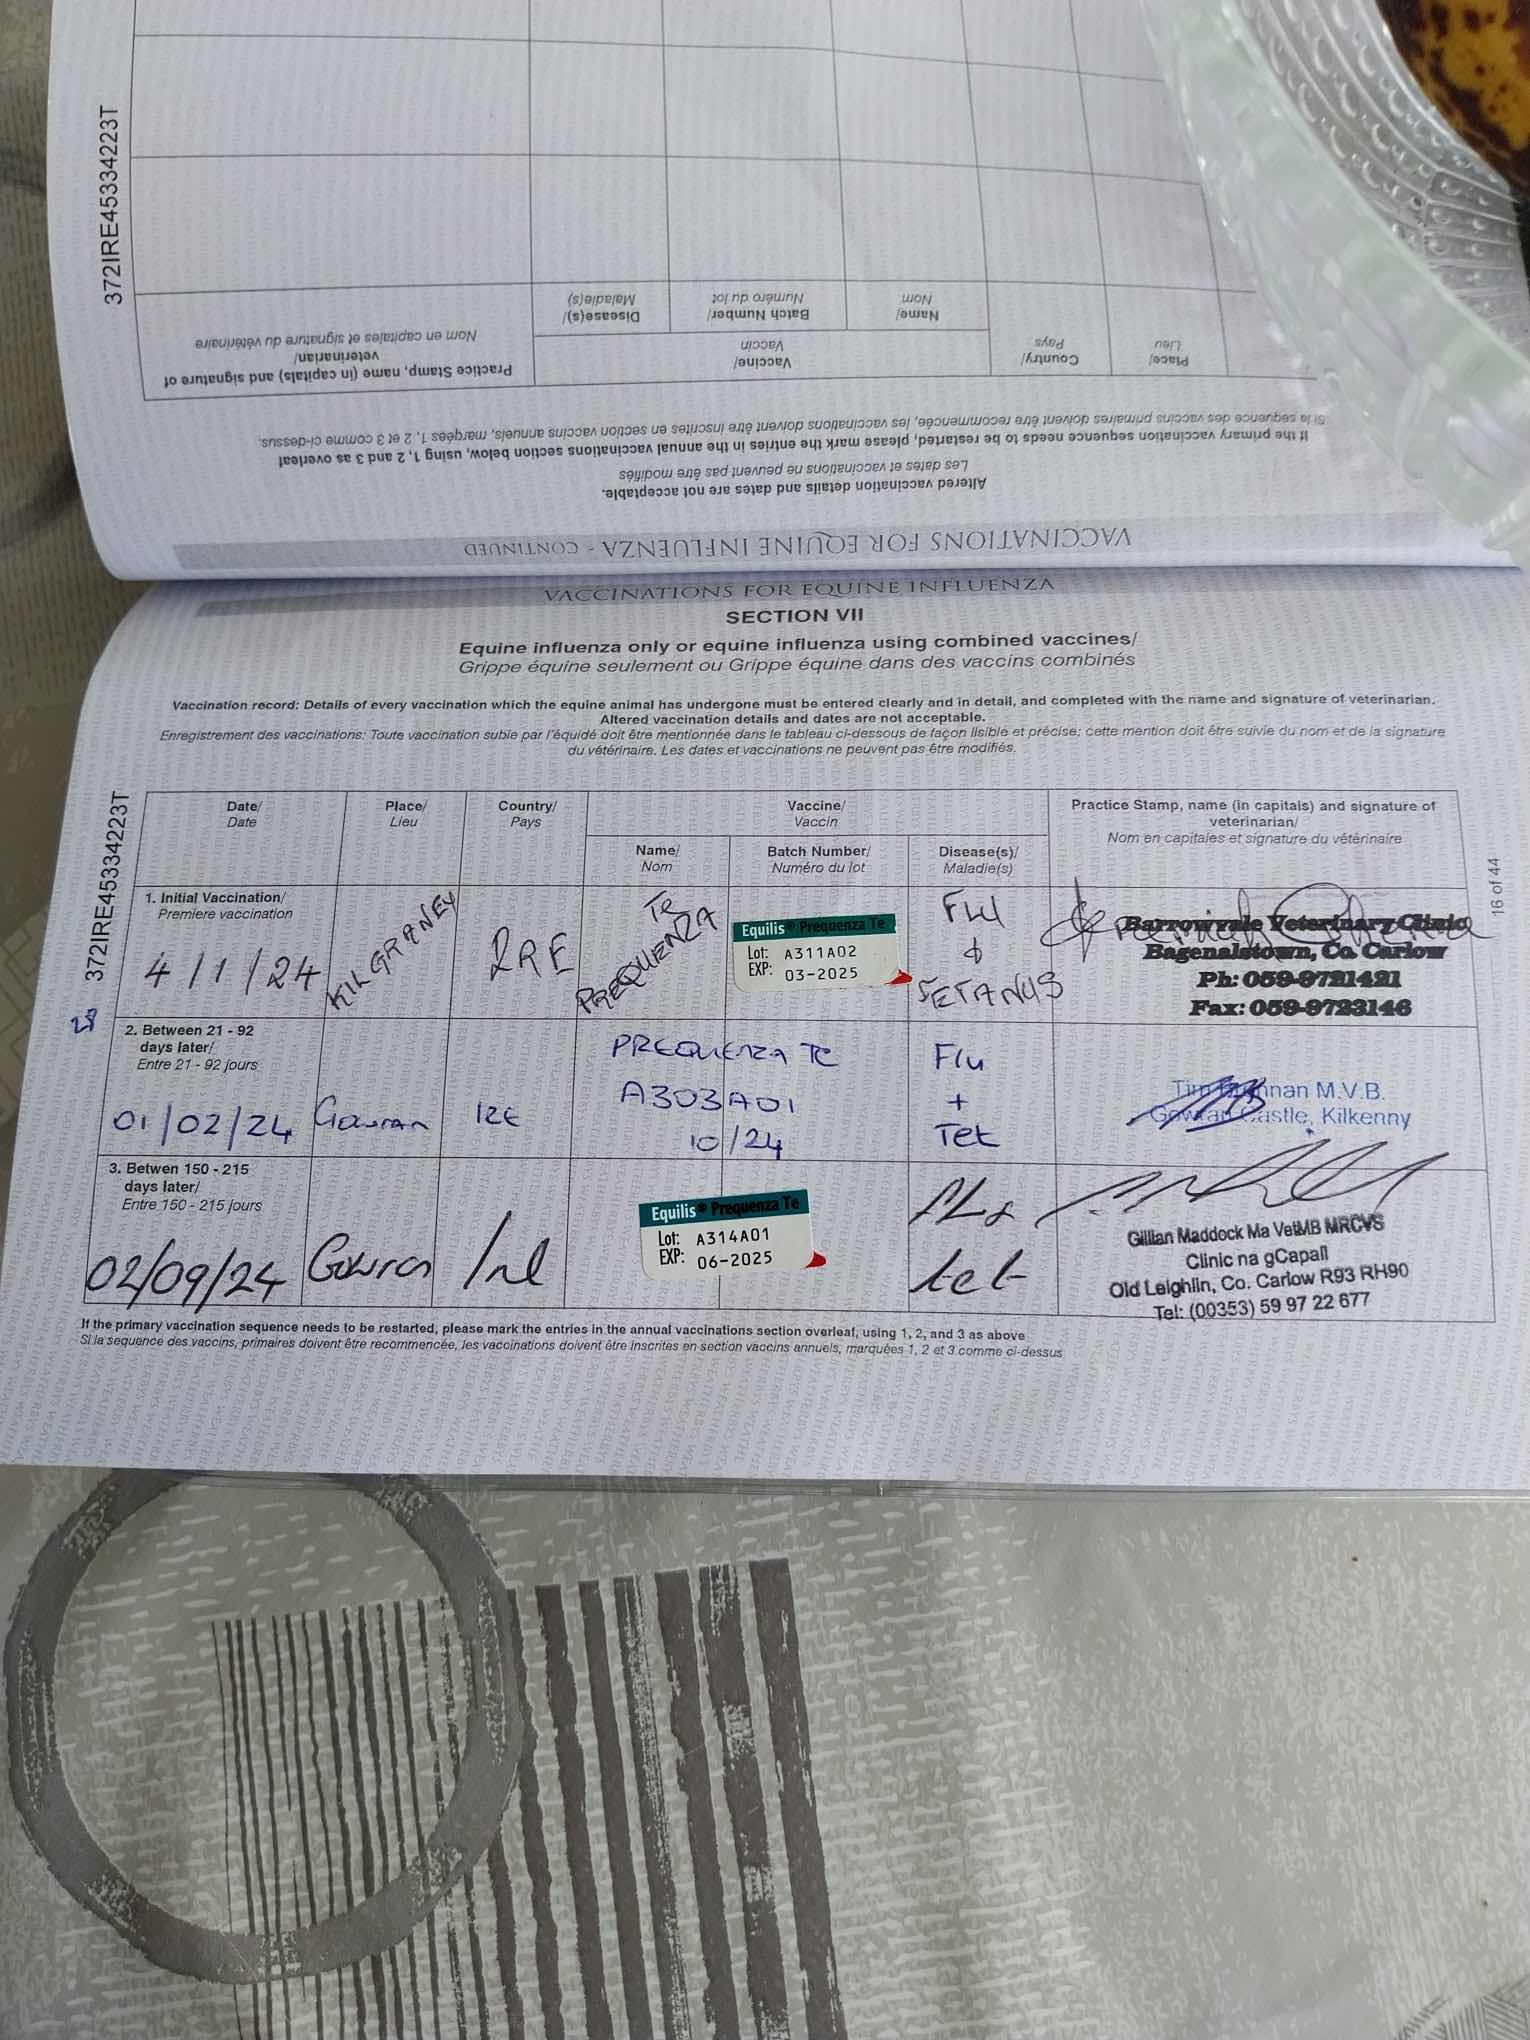 372IRE45334223T
Practice Stamp, name (in capitals) and signature of
veterinarian/
Nom en capitales et signature du vétérinaire
Vaccine/
Vaccin
Disease(s)/
Maladie(s)
Batch Number/
Numéro du lot
Name/
Nom
Country/
Pays
Place/
Lieu
Si la sequence des vaccins primaires doivent être recommencée, les vaccinations doivent être inscrites en section vaccins annuels, marqées 1, 2 et 3 comme ci-dessus.
If the primary vaccination sequence needs to be restarted, please mark the entries in the annual vaccinations section below, using 1, 2 and 3 as overleaf
Les dates et vaccinations ne peuvent pas être modifiés
Altered vaccination details and dates are not acceptable.
VACCINATIONS FOR EQUINE INFLUENZA - CONTINUED
VACCINATIONS FOR EQUINE INFLUENZA
SECTION VII
Equine influenza only or equine influenza using combined vaccines/
Grippe équine seulement ou Grippe équine dans des vaccins combinés
Vaccination record: Details of every vaccination which the equine animal has undergone must be entered clearly and in detail, and completed with the name and signature of veterinarian.
Altered vaccination details and dates are not acceptable.
Enregistrement des vaccinations: Toute vaccination subie par l'équidé doit être mentionnée dans le tableau ci-dessous de façon lisible et précise; cette mention doit être suivie du nom et de la signature
du vétérinaire. Les dates et vaccinations ne peuvent pas être modifiés.
372IRE45334223T
16 of 44
Date/
Date
Place/
Lieu
Country/
Pays
Vaccine/
Vaccin
Name/
Nom
Batch Number/
Numéro du lot
Disease(s)/
Maladie(s)
Practice Stamp, name (in capitals) and signature of
veterinarian/
Nom en capitales et signature du vétérinaire
1. Initial Vaccination/
Premiere vaccination
4/1/24
KILGRANEY
IRE
Te
PREQUENZA
PREQUENZA
Equilis® Prequenza Te
Lot: A311A02
EXP: 03-2025
FLU
&
TETANUS
Barrowvale Veterinary Clinic
Bagenalstown, Co. Carlow
Ph: 059-9721421
Fax: 059-9723146
28
2. Between 21 - 92
days later/
Entre 21 - 92 jours
01/02/24
Gowran
IRE
PREQUENZA TE
A303A01
10/24
Flu
+
Tet
M.V.B.
Gowran Castle, Kilkenny
3. Betwen 150 - 215
days later/
Entre 150 - 215 jours
02/09/24
Gowran
Irl
Equilis® Prequenza Te
Lot: A314A01
EXP: 06-2025
Flu
tet
Gillian Maddock Ma VetMB MRCVS
Clinic na gCapall
Old Leighlin, Co. Carlow R93 RH90
Tel: (00353) 59 97 22 677
If the primary vaccination sequence needs to be restarted, please mark the entries in the annual vaccinations section overleaf, using 1, 2, and 3 as above
Si la sequence des vaccins, primaires doivent être recommencée, les vaccinations doivent être inscrites en section vaccins annuels, marquées 1, 2 et 3 comme ci-dessus